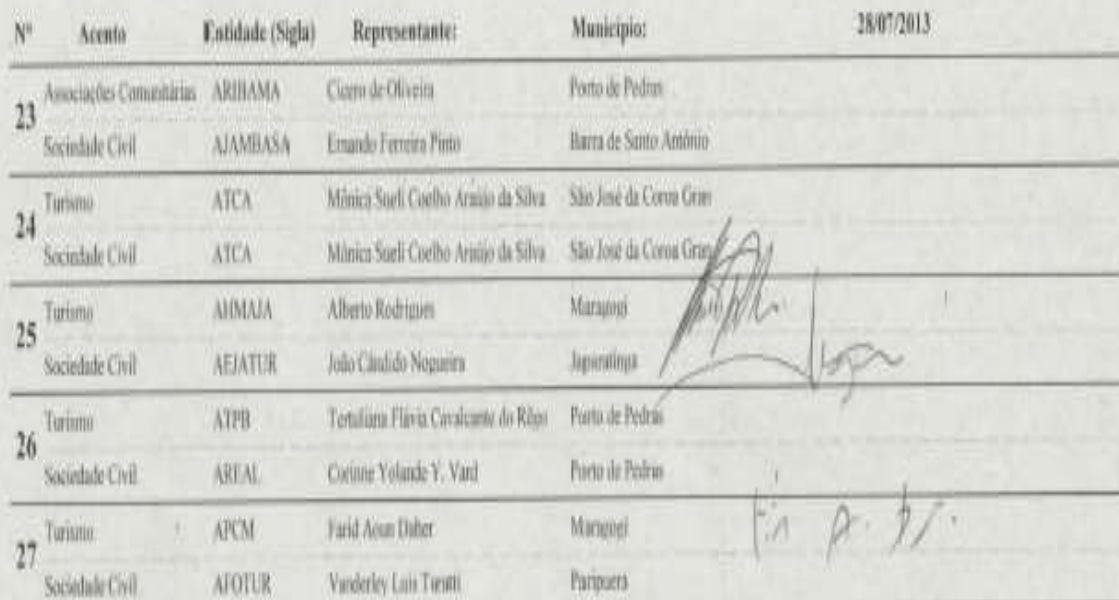 Nº Acento Entidade (Sigla) Representante: Município: 28/07/2013
23
Associações Comunitárias ARIBAMA Cicero de Oliveira Porto de Pedras
Sociedade Civil AJAMBASA Ernando Ferreira Pinto Barra de Santo Antônio
24
Turismo ATCA Mônica Sueli Coelho Araújo da Silva São José da Coroa Gran
Sociedade Civil ATCA Mônica Sueli Coelho Araújo da Silva São José da Coroa Gran
25
Turismo AHMAJA Alberto Rodrigues Maragogi
Sociedade Civil AEJATUR João Cândido Nogueira Japaratinga
26
Turismo ATPB Flávia Cavalcante do Rêgo Porto de Pedras
Sociedade Civil AREAL Corinne Yolande Y. Vard Porto de Pedras
27
Turismo APCM Farid Aoun Daher Maragogi
Sociedade Civil AFOTUR Vanderley Luis Paripuera